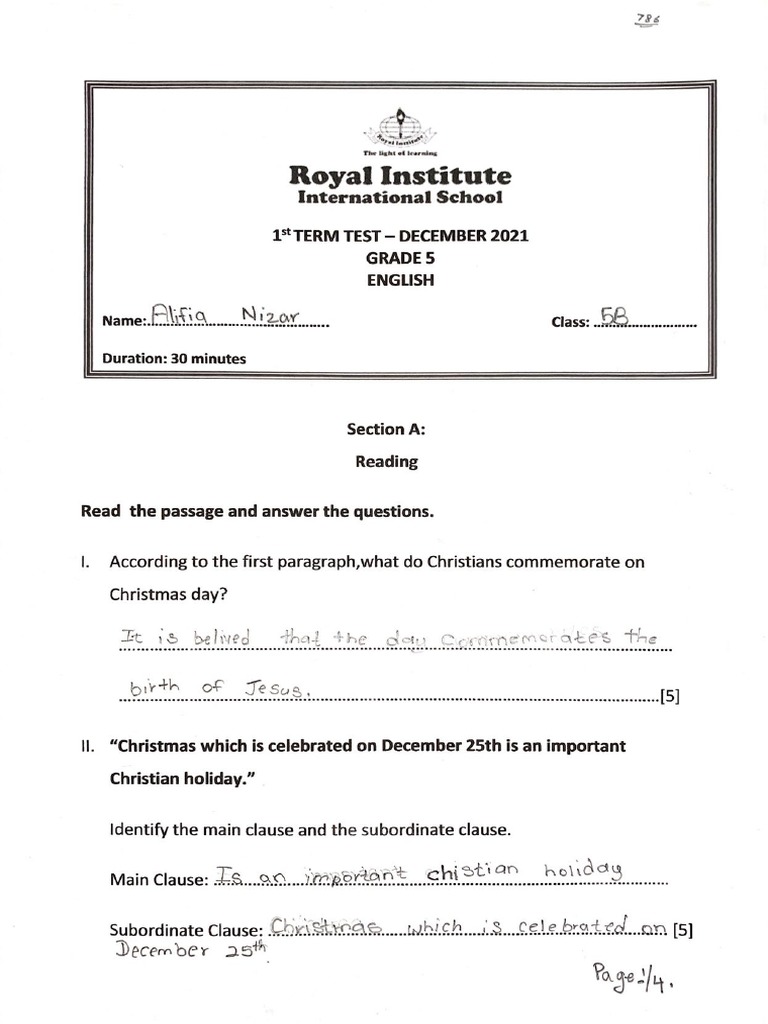 786
Royal Institute
The light of learning
Royal Institute
International School
1st TERM TEST – DECEMBER 2021
GRADE 5
ENGLISH
Name: Alifia Nizar Class: 5B
Duration: 30 minutes
Section A:
Reading
Read the passage and answer the questions.
I. According to the first paragraph,what do Christians commemorate on
Christmas day?
It is belived that the day Commemorates the
birth of Jesus. [5]
II. “Christmas which is celebrated on December 25th is an important
Christian holiday.”
Identify the main clause and the subordinate clause.
Main Clause: Is an important chistian holiday
Subordinate Clause: Christmas which is celebrated on [5]
December 25th
Page:-1/4.